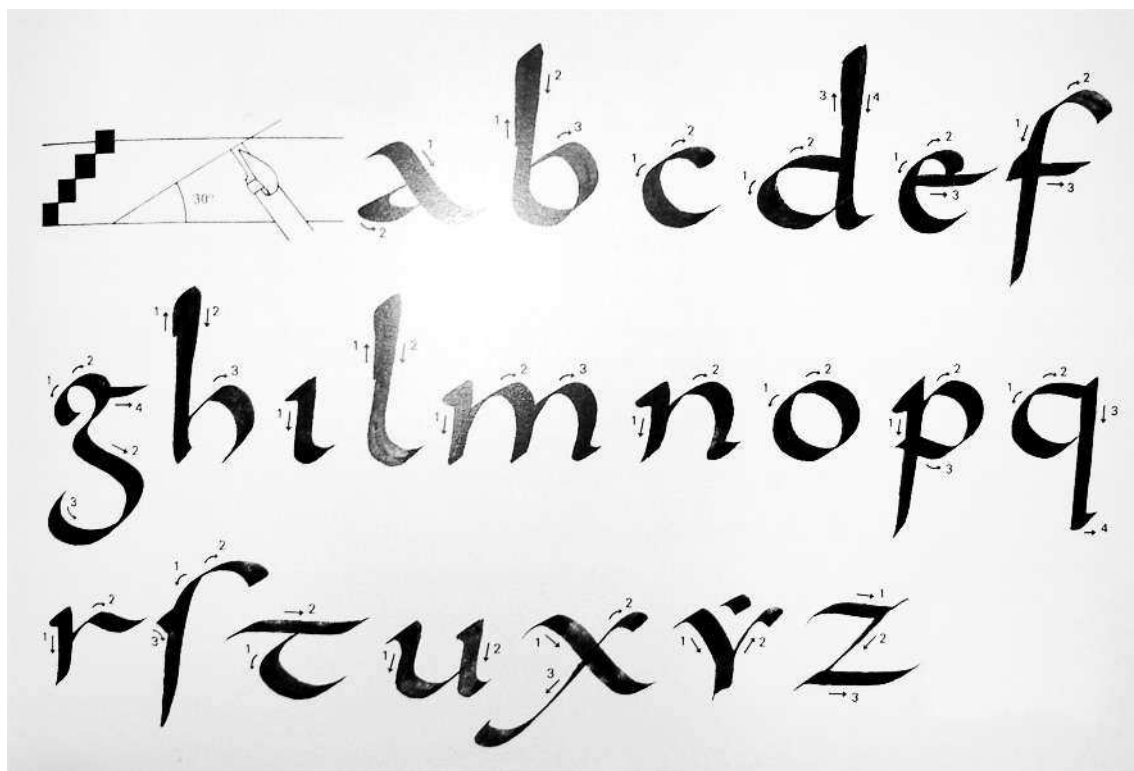 30° a b c d e f
g h ı l m n o p q
r ſ t u x ẏ z